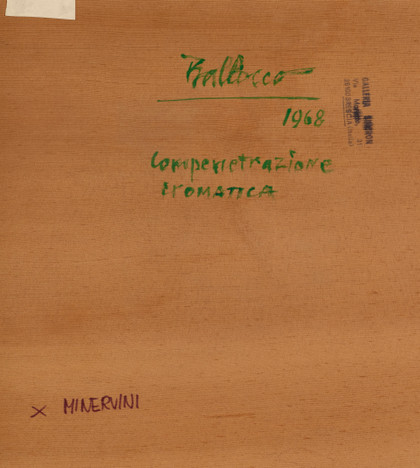 Ballocco
1968
Compenetrazione
cromatica
GALLERIA
BRESCIA
X MINERVINI